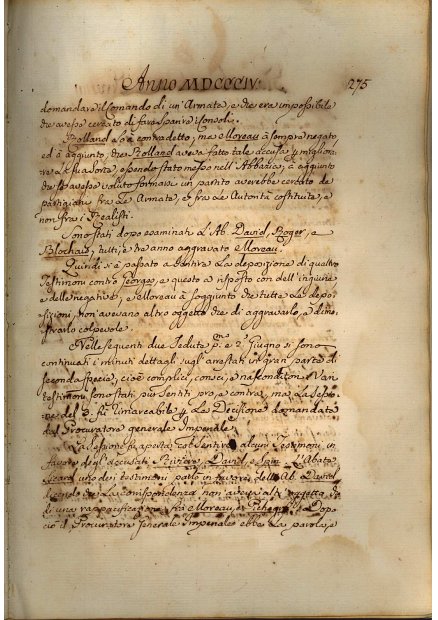 Anno MDCCCIV. 275
domandare il Comando di un' Armata, e che era impossibile
che avesse cercato di fare sparire i Consoli.
Rolland lo à contradetto, ma Moreau à sempre negato
ed à aggiunto, che Rolland aveva fatto tale accusa p migliora
re la sua sorte, essendo stato messo nell' Abbadia; à aggiunto
che se avesse voluto formare un partito averebbe cercato de
partigiani fra le Armate, e fra le Autorità costituite, e
non fra i Realisti.
Sono stati dopo esaminati l'Ab. David, Roger, e
tutti, e tre anno aggravato Moreau.
Quindi si è passato a sentire la deposizione di quattro
Testimoni contro Georges, e questo à risposto con dell' ingiurie
e delle negative; e Moreau à soggiunto che tutte le depo
sizioni, non avevano altro oggetto che di aggravarlo, e dimo
strarlo colpevole.
Nelle seguenti due Sedute pmo e 2 Giugno si sono
continuati i minuti dettagli sugl' arrestati in gran parte di
seconda specie, cioè complici, conscj, e nasconditori. Varj
testimoni sono stati pur sentiti pro, e contra, ma la Sessio
ne del 3. fù rimarcabile p la Decisione domandata
dal Procuratore generale Imperiale.
La Sessione fù aperta col sentire alcuni Testimoni in
favore degl' accusati Riviere, David, e L'Abate
uno dei testimoni parlò in favore dell' Ab. David
dicendo che la corrispondenza non aveva altro oggetto
di una rappacificazione fra Moreau, e Pichegru. Dopo
ciò il Procuratore Generale Imperiale ebbe la parola, e